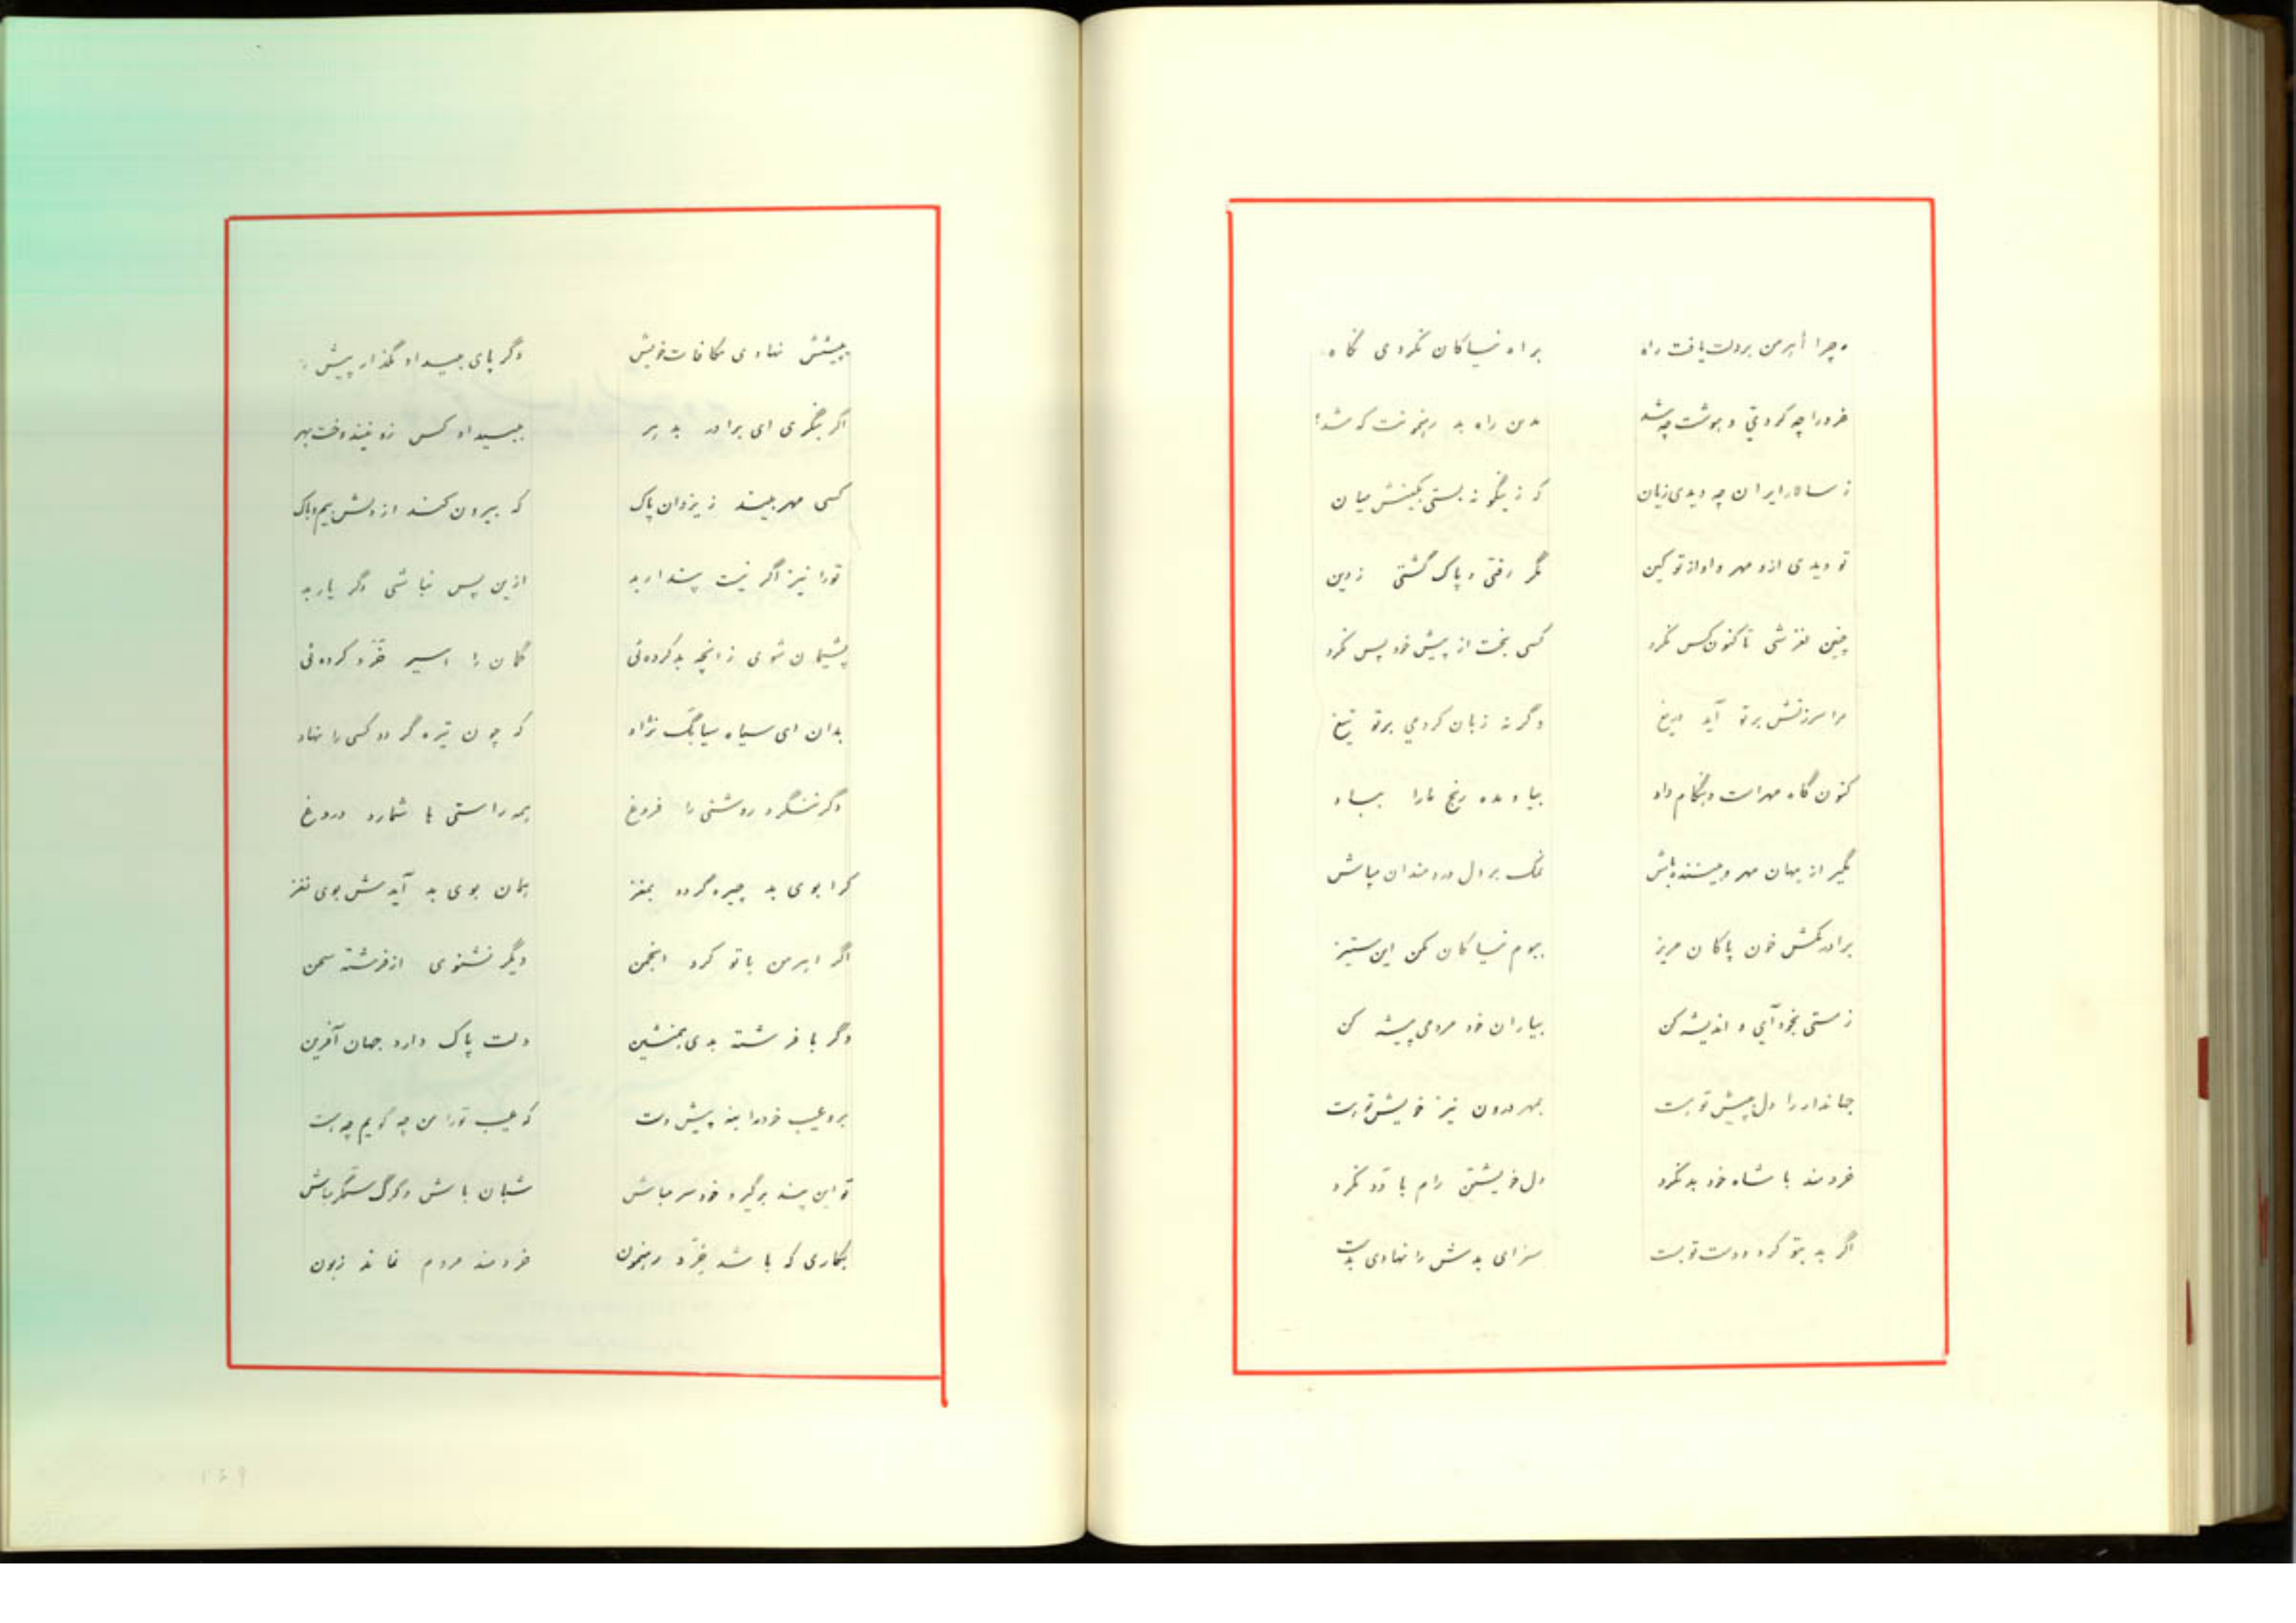 چرا أهرمن بردلت یافت راه براه نیاکان نکردی نگاه
خرد را چه کردی و هوشت چه شد بدین راه بد رهنمونت که شد؟
ز سالار ایران چه دیدی زیان که زینگونه بستی بکینش میان
تو دیدی ازو مهر و او از تو کین مگر رفتی و پاک گشتی ز دین
چنین لغزشی تا کنون کس نکرد کسی بخت از پیش خود پس نکرد
مرا سرزنش بر تو آید دریغ وگرنه زبان کردمی بر تو تیغ
کنون گاه مهر است و هنگام داد بیا و مده رنج ما را بباد
مگیر از جهان مهر و بیننده باش نمک بر دل دردمندان مپاش
برادر مکش خون پاکان مریز ببوم نیاکان مکن این ستیز
ز مستی بخود آی و اندیشه کن بیاران خود مردمی پیشه کن
جهاندار را دل پیش تو است بمهر درون نیز خویش تو است
خردمند با شاه خود بد نکرد دل خویشتن رام با دد نکرد
اگر بد بتو کرد دست تو بست سزای بدش را نهادی بدست
بپیشش نهادی مکافات خویش دگر پای بیداد مگذار پیش
اگر بنگری ای برادر بد بر ببیداد کس زو نیندوخت بهر
کسی مهر بیند ز یزدان پاک که بیرون کند از دلش بیم و باک
تو را نیز اگر نیست پندار بد ازین پس نباشی دگر یار بد
پشیمان شوی زانچه بد کرده‌ئی گمان را اسیر خرد کرده‌ئی
بدان ای سیاه سیابگ نژاد که چون تیره گردد کسی را نهاد
دگر ننگرد روشنی را فروغ همه راستی ها شمارد دروغ
کرا بوی بد چیره گردد بمغز همان بوی بد آیدش بوی نغز
اگر اهرمن با تو کرد انجمن دیگر نشنوی از فرشته سخن
وگر با فرشته بدی همنشین دلت پاک دارد جهان آفرین
برو عیب خود را بنه پیش دست که عیب تو را من چه گویم چه است
تو این پند برگیر و خودسر مباش شبان باش و گرگ ستمگر مباش
بکاری که باشد خرد رهنمون خردمند مردم نماند زبون
۱۴۹